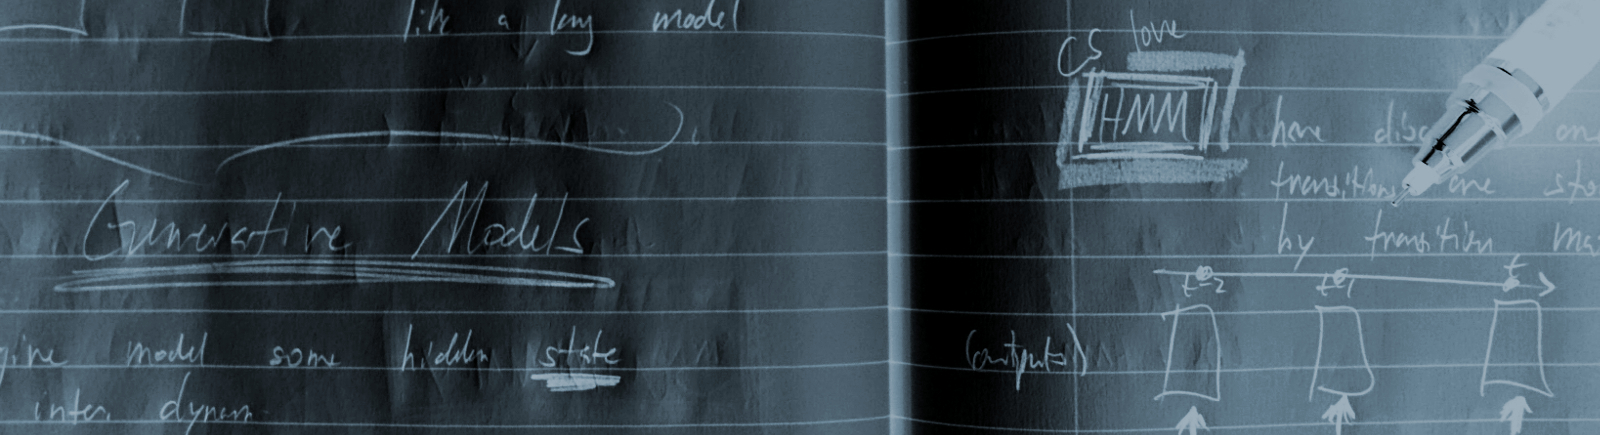 like a long model
Generative Models
model some hidden state
inter. dynam
CS love
HMM
have
transition one
by transition
t-2 t-1 t
(outputs)